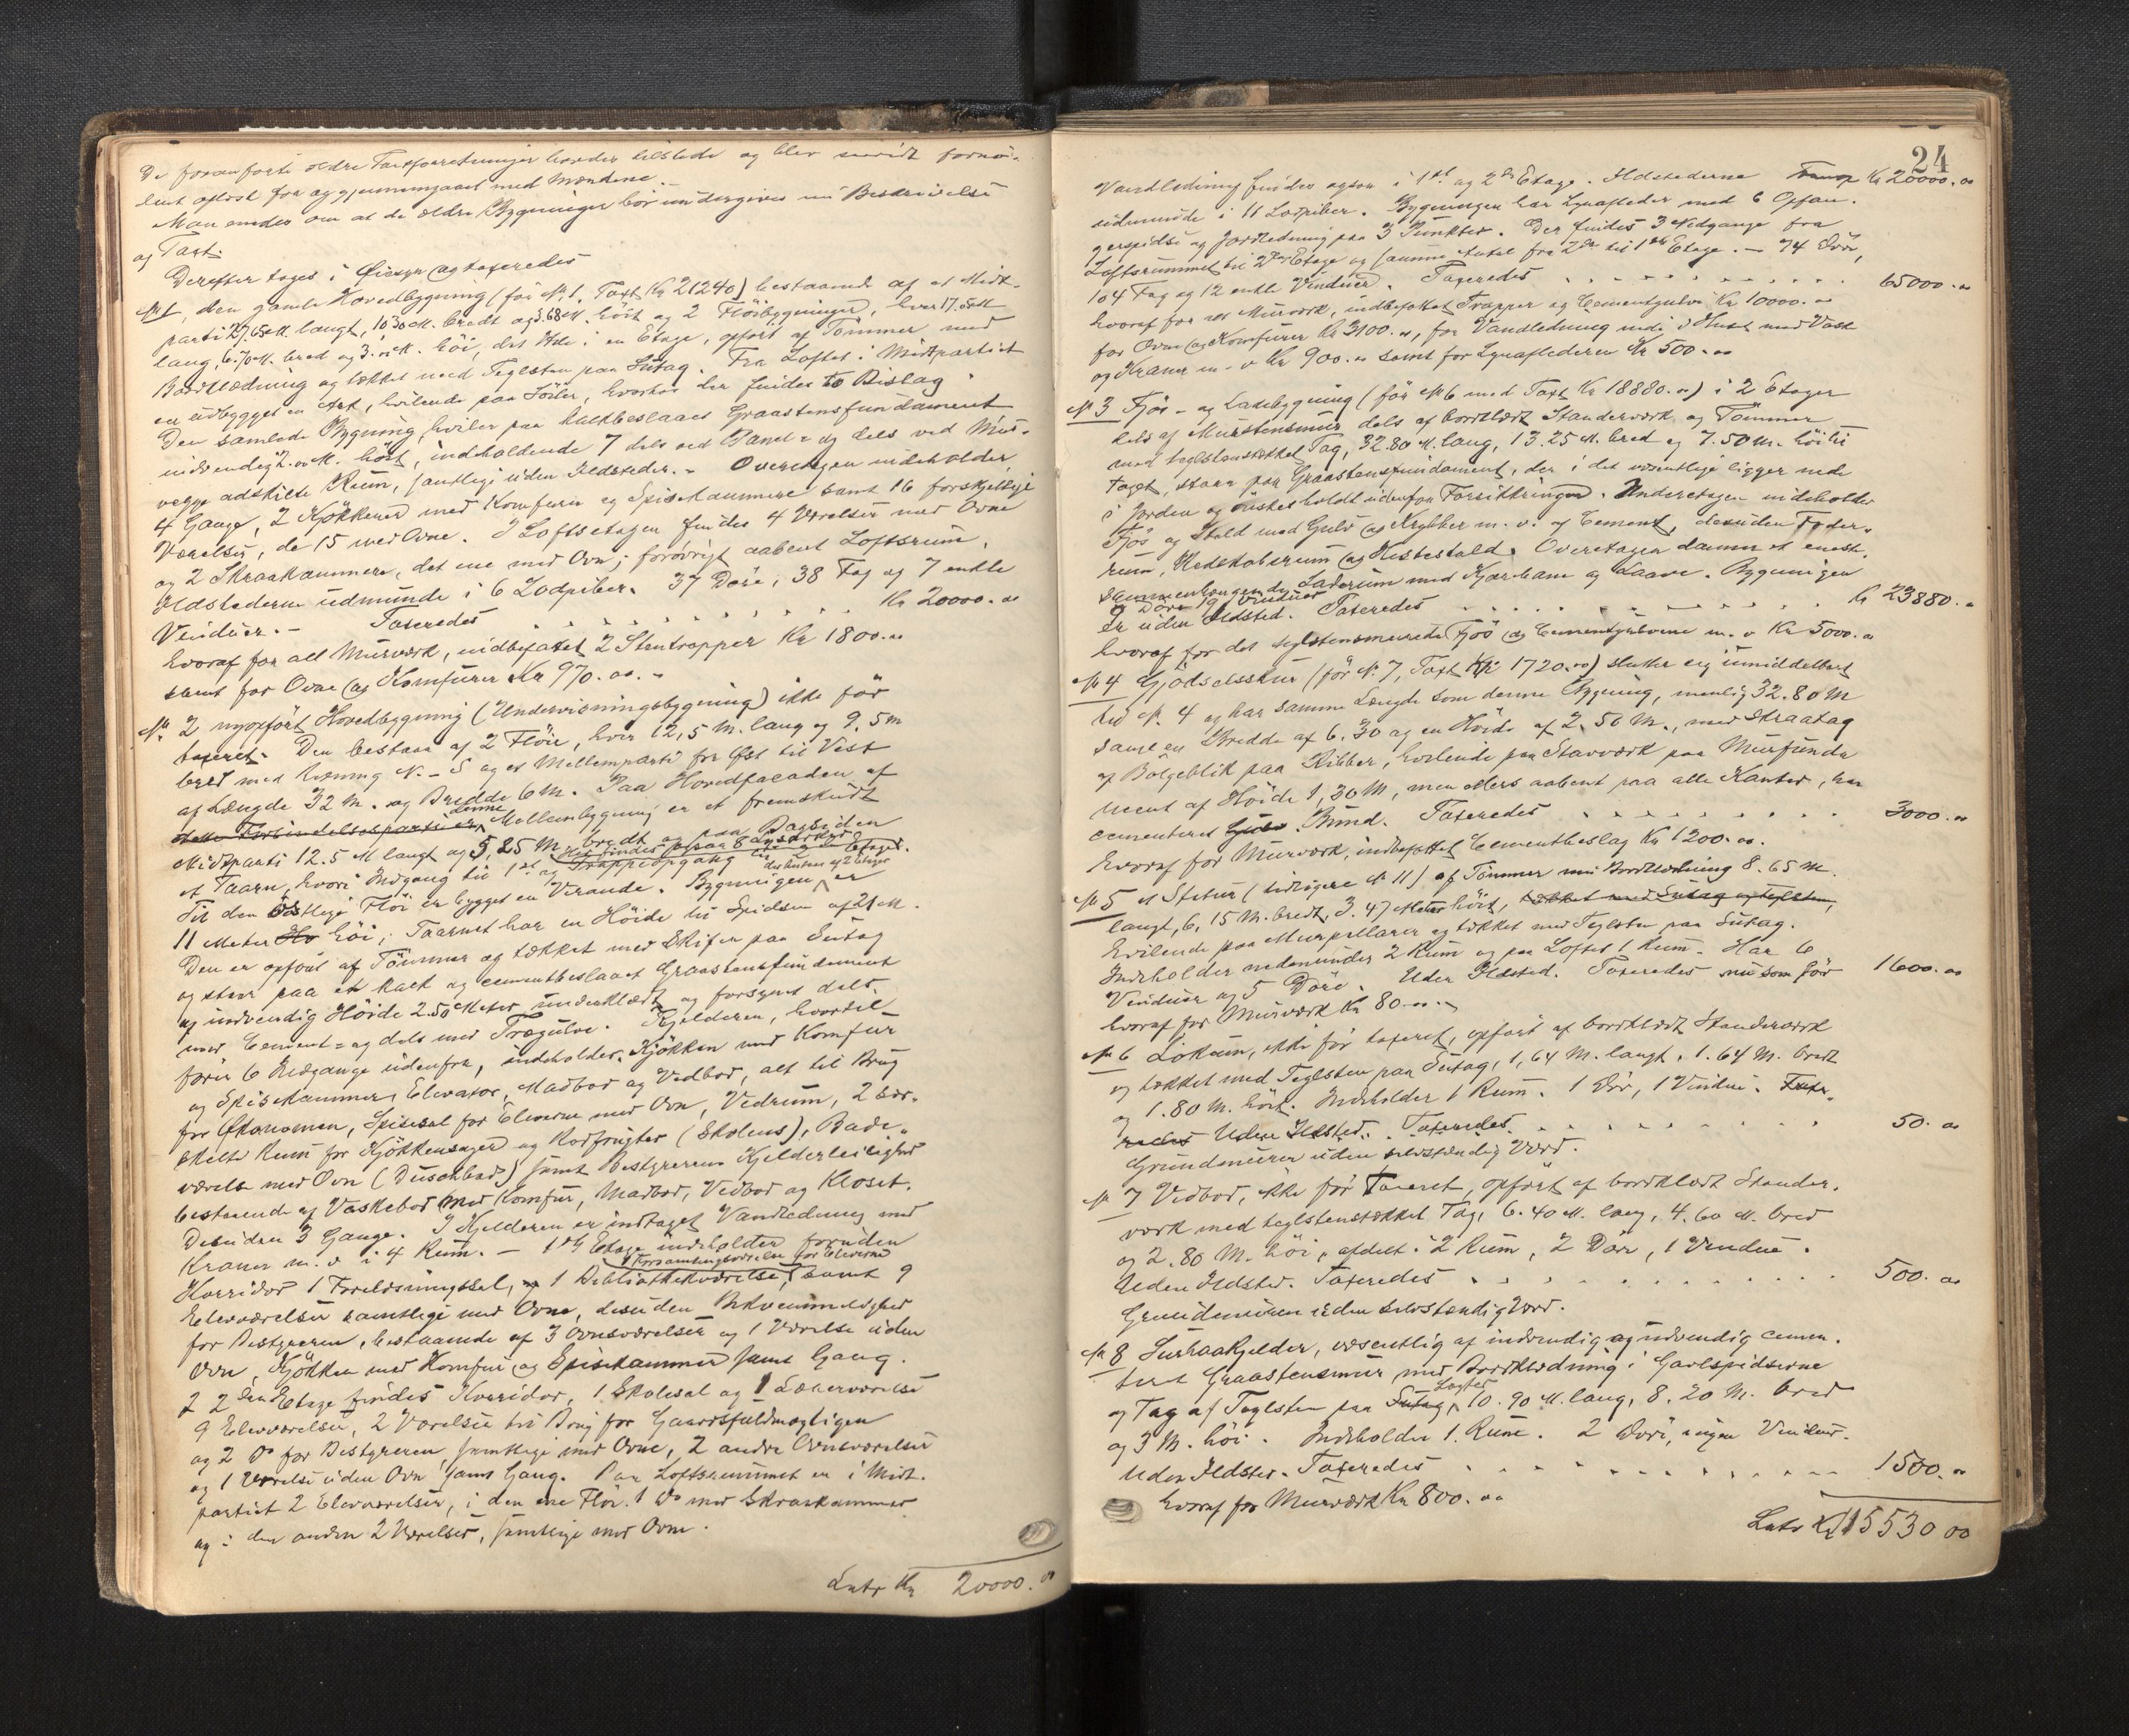 De foranførte ældre Taxforretninger havdes tilstede og blev saavidt fornø-
dent oplæst for og gjennemgaaet med Mændene.
Man enedes om at de ældre Bygninger bør undergives ny Beskrivelse
og Taxt.
Derefter toges i Øiesyn og taxeredes
No 1, den gamle Hovedbygning (før No 1. Taxt Kr 21240) bestaaende af et Midt-
parti 27.65 M. langt, 10.30 M. bredt og 3.68 M. høit og 2 Fløibygninger, hver 17.
lang, 6.70 M. bred og 3. M. høi, det Hele i en Etage, opført af Tømmer med
Bordklædning og tækket med Teglsten paa Sutag. Fra Loftet i Midtpartiet
er udbygget en Ark, hvilende paa Søiler, hvorhos der findes to Bislag.
Den samlede Bygning hviler paa kalkbeslaaet Graastensfundament
indvendig 2.00 M. høit, indeholdende 7 dels ved Panel- og dels ved Mur-
vægge adskilte Rum, samtlige uden Ildsteder. - Overetagen indeholder
4 Gange, 2 Kjøkkener med Komfurer og Spisekammere samt 16 forskjellige
Værelser, de 15 med Ovne. I Loftsetagen findes 4 Værelser med Ovne
og 2 Skraakammere, det ene med Ovn; forøvrigt aabent Loftsrum.
Ildstederne udmunde i 6 Lodpiber. 37 Døre, 38 Fag og 7 enkle
Vinduer. - Taxeredes . . . . . . . Kr 20000.00
hvoraf for alt Murværk, indbefattet 2 Stentrapper Kr 1800.00
samt for Ovne og Komfurer Kr 970.00. -
No 2 nyopført Hovedbygning (Undervisningsbygning) ikke før
taxeret. Den bestaar af 2 Fløie, hver 12,5 M. lang og 9.5 M
bred med Retning N. - S og et Mellemparti fra Øst til Vest
af Længde 32 M. og Bredde 6 M. Paa Hovedfacaden af
dette Forbindelsesparti er denne Mellembygning er et fremskudt
Midtparti 12.5 M langt og 5,25 M. bredt og paa Bagsiden
et Taarn, hvori Indgang til 1ste og Trappeopgang til 2den Etage.
Til den østlige Fløi er bygget en Veranda. Bygningen, der bestaar af 2 Etager er
11 Meter høi; Taarnet har en Høide til Spidsen af 21 M.
Den er opført af Tømmer og tækket med Skifer paa Sutag
og staar paa et kalk og cementbeslaaet Graastensfundament
af indvendig Høide 2.50 Meter, underklædt og forsynet dels
med Cement- og dels med Trægulve. Kjelderen, hvortil
fører 6 Nedgange udenfra, indeholder Kjøkken med Komfur
og Spisekammer, Elevator, Madbod og Vedbod, alt til Brug
for Økonomen, Spisesal for Eleverne med Ovn, Vedrum, 2 sær-
skilte Rum for Kjøkkensager og Rodfrugter (Skolens), Bade-
værelse med Ovn (Duschbad) samt Bestyrerens Kjelderleilighed
bestaaende af Vaskebod med Komfur, Madbod, Vedbod og Kloset.
Desuden 3 Gange. I Kjelderen er indtaget Vandledning med
Kraner m. v i 4 Rum. - 1ste Etage indeholder foruden
Korridor 1 Forelæsningssal, 1 Bibliothekværelse, 1 Forsamlingsværelse for Eleverne samt 9
Elevværelser samtlige med Ovne, desuden Bekvemmelighed
for Bestyreren, bestaaende af 3 Ovnsværelser og 1 Værelse uden
Ovn, Kjøkken med Komfur og Spisekammer samt Gang.
I 2den Etage findes Korridor, 1 Skolesal og 1 Lærerværelse
9 Elevværelser, 2 Værelser til Brug for Gaardsfuldmægtigen
og 2 do for Bestyreren, samtlige med Ovne, 2 andre Ovnsværelser
og 1 Værelse uden Ovn samt Gang. Paa Loftsrummet er i Midt-
partiet 2 Elevværelser, i den ene Fløi 1 do med Skraakammer
og i den anden 2 Værelser, samtlige med Ovn.
Latr Kr 20000.00
24
Vandledning findes ogsaa i 1ste og 2den Etage. Ildstederne Transp Kr 20000.00
udmunde i 11 Lodpiber. Bygningen har Lynafleder med 6 Opfan-
gerspidse og Jordledning paa 3 Punkter. Der findes 3 Nedgange fra
Loftsrummet til 2den Etage og samme Antal fra 2den til 1ste Etage. - 74 Døre,
104 Fag og 12 enkle Vinduer. Taxeredes . . . . . . . 65000.00
hvoraf for alt Murværk, indbefattet Trapper og Cementgulve Kr 10000.00
for Ovne og Komfurer Kr 3100.00, for Vandledning inde i Huset med Vask
og Kraner m. v Kr 900.00 samt for Lynaflederen Kr 500.00
No 3 Fjøs- og Ladebygning (før No 6 med Taxt Kr 18880.00) i 2 Etager
dels af Murstensmur dels af bordklædt Stenderværk og Tømmer
med teglstenstækket Tag, 32.80 M. lang, 13.25 M. bred og 7.50 M. høi til
Taget, staar paa Graastensfundament, der i det væsentlige ligger nede
i Jorden og ønskes holdt udenfor Forsikringen. Underetagen indeholder
Fjøs og Stald med Gulv og Krybber m. v. af Cement, desuden Foder-
rum, Redskabsrum og Hestestald. Overetagen danner et enest.
sammenhængende Laderum med Kjørebane og Laave. Bygningen
9 Døre 19 Vinduer
er uden Ildsted. Taxeredes . . . . . . . Kr 23880.00
hvoraf for det teglstensmurede Fjøs og Cementgulvene m. v Kr 5000.00
No 4 Gjødselsskur (før No 7, Taxt Kr 1720.00) slutter sig umiddelbart
til No. 4 og har samme Længde som denne Bygning, nemlig 32.80 M
samt en Bredde af 6.30 og en Høide af 2.50 M., med Skraatag
af Bølgeblik paa Ribber, hvilende paa Stavværk paa Murfunda
ment af Høide 1,30 M, men ellers aabent paa alle Kanter, har
cementeret Gulv Bund. Taxeredes . . . . . . . 3000.00
hvoraf for Murværk, indbefattet Cementbeslag Kr 1200.00.
No 5 et Stabur (tidligere No 11) af Tømmer med Bordklædning 8.65 M.
langt, 6,15 M. bredt, 3.47 Meter høit, tækket med Sutag og Teglsten,
hvilende paa Murpillarer og tækket med Teglsten paa Sutag.
Indeholder nedenunder 2 Rum og paa Loftet 1 Rum. Har 6
Vinduer og 5 Døre. Uden Ildsted. Taxeredes nu som før 1600.00
hvoraf for Murværk Kr 80.00
No 6 Lokum, ikke før taxeret, opført af bordklædt Stenderværk
og tækket med Teglsten paa Sutag, 1,64 M. langt, 1.64 M. bredt
og 1.80 M. høit. Indeholder 1 Rum. 1 Dør, 1 Vindue. Taxe-
redes Uden Ildsted. Taxeredes . . . . . . . 50.00
Grundmuren uden selvstændig Værd.
No 7 Vedbod, ikke før taxeret, opført af bordklædt Stender-
værk med teglstenstækket Tag, 6.40 M. lang, 4.60 M. bred
og 2.80 M. høi, afdelt i 2 Rum, 2 Døre, 1 Vindue.
Uden Ildsted. Taxeredes . . . . . . . 500.00
Grundmuren uden selvstændig Værd.
No 8 Surhaakjelder, væsentlig af indvendig og udvendig cemen-
teret Graastensmur med Bordklædning i Gavlspidserne
og Tag af Teglsten paa Sutag Lægter, 10.90 M. lang, 8.20 M. bred
og 3 M. høi. Indeholder 1. Rum. 2 Døre, ingen Vinduer.
Uden Ildsted. Taxeredes . . . . . . . 1500.00
hvoraf for Murværk Kr 800.00
Latr Kr 115530 00